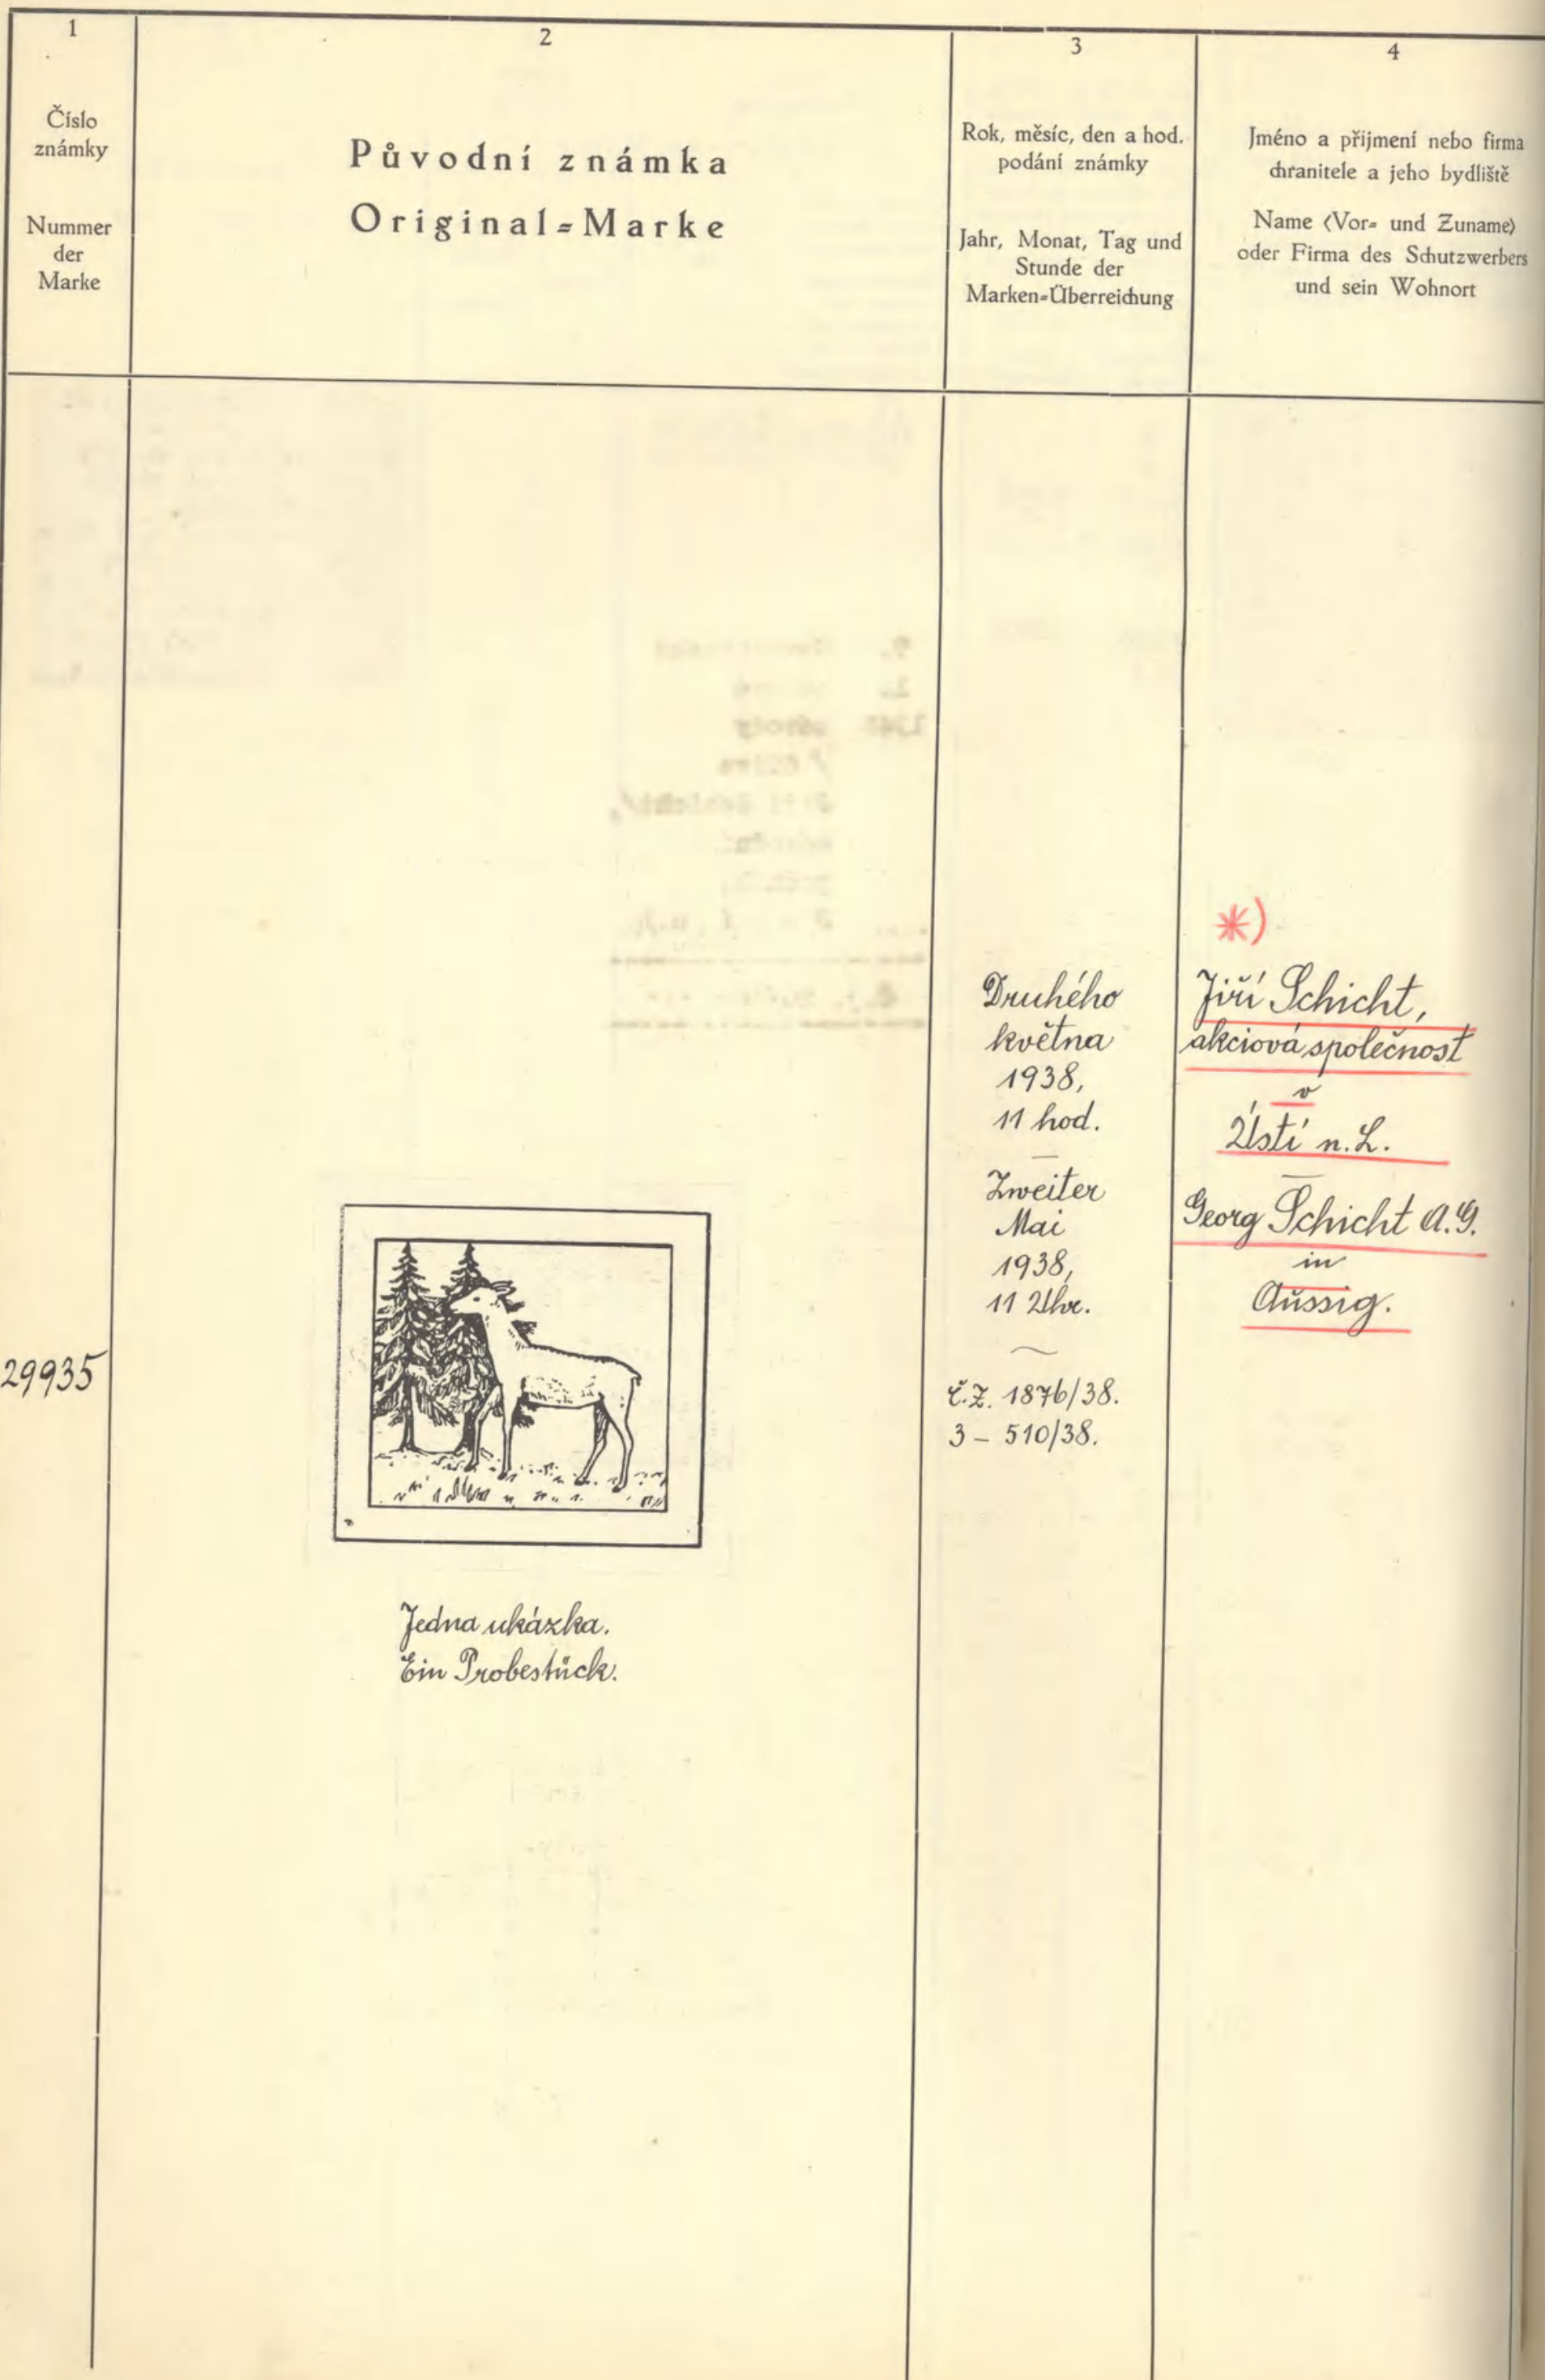 1
Číslo
známky
Nummer
der
Marke
2
Původní známka
Original=Marke
3
Rok, měsíc, den a hod.
podání známky
Jahr, Monat, Tag und
Stunde der
Marken=Überreichung
4
Jméno a přijmení nebo firma
chranitele a jeho bydliště
Name (Vor= und Zuname)
oder Firma des Schutzwerbers
und sein Wohnort
29935
Jedna ukázka.
Ein Probestück.
Druhého
května
1938,
11 hod.
—
Zweiter
Mai
1938,
11 Uhr.
č.ž. 1876/38.
3 – 510/38.
*)
Jiří Schicht,
akciová společnost
v
Ústí n. L.
—
Georg Schicht A.G.
in
Aussig.